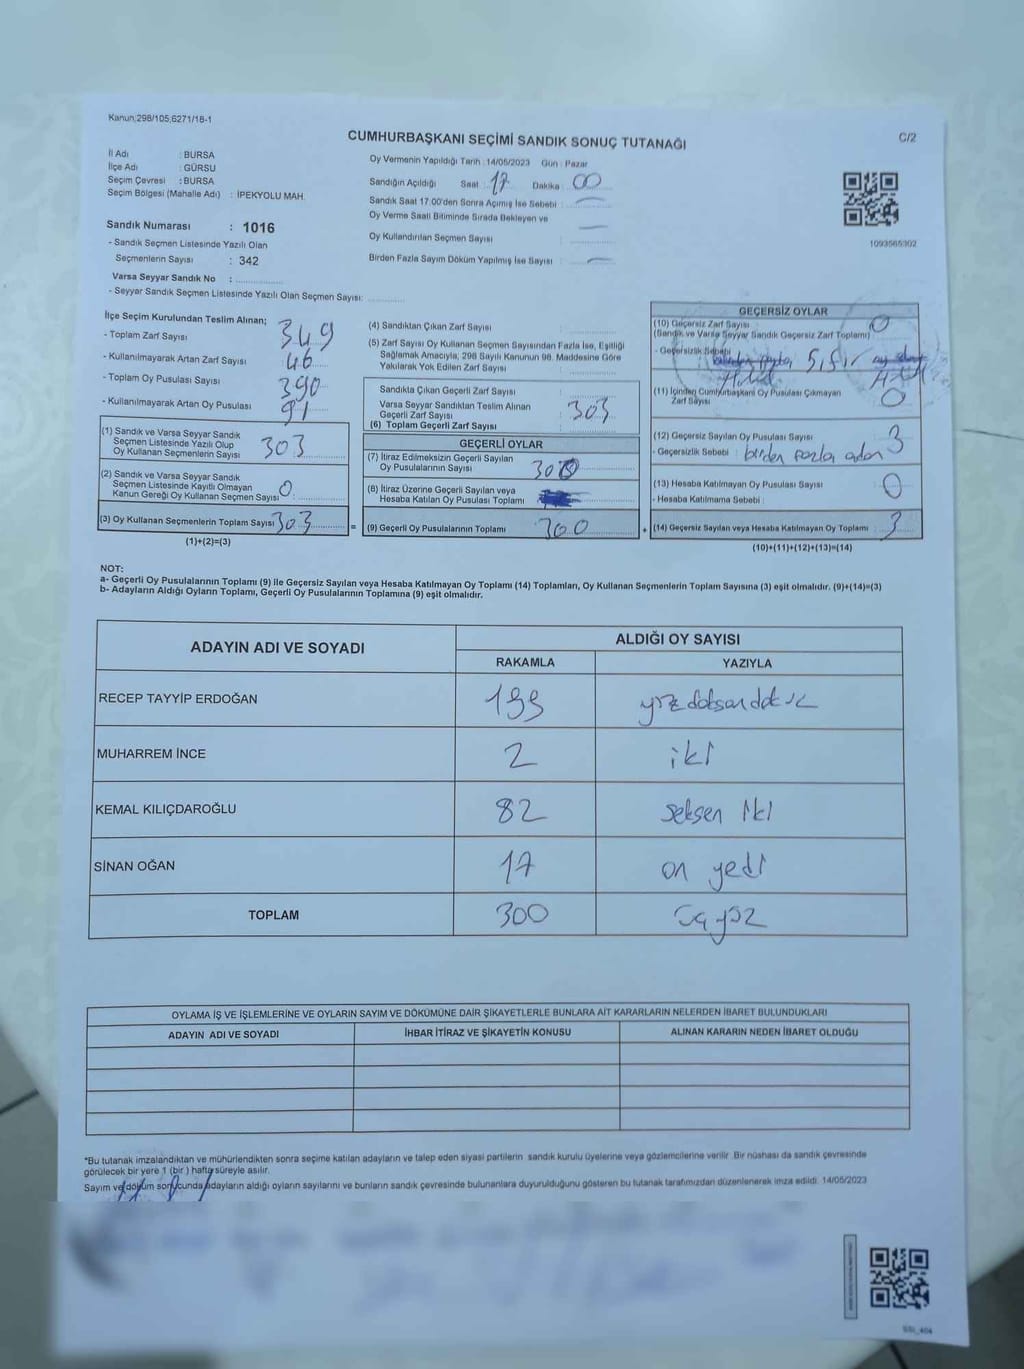 Kanun;298/105;6271/18-1
CUMHURBAŞKANI SEÇİMİ SANDIK SONUÇ TUTANAĞI
C/2
İl Adı : BURSA
İlçe Adı : GÜRSU
Seçim Çevresi : BURSA
Seçim Bölgesi (Mahalle Adı) : İPEKYOLU MAH.
Sandık Numarası : 1016
- Sandık Seçmen Listesinde Yazılı Olan
Seçmenlerin Sayısı : 342
Varsa Seyyar Sandık No :
- Seyyar Sandık Seçmen Listesinde Yazılı Olan Seçmen Sayısı:
Oy Vermenin Yapıldığı Tarih : 14/05/2023 Gün : Pazar
Sandığın Açıldığı Saat : 17 Dakika : 00
Sandık Saat 17:00'den Sonra Açımış İse Sebebi :
Oy Verme Saati Bitiminde Sırada Bekleyen ve
Oy Kullandırılan Seçmen Sayısı :
Birden Fazla Sayım Döküm Yapılmış İse Sayısı :
1093565302
İlçe Seçim Kurulundan Teslim Alınan;
- Toplam Zarf Sayısı 349
- Kullanılmayarak Artan Zarf Sayısı 46
- Toplam Oy Pusulası Sayısı 390
- Kullanılmayarak Artan Oy Pusulası 91
(1) Sandık ve Varsa Seyyar Sandık
Seçmen Listesinde Yazılı Olup
Oy Kullanan Seçmenlerin Sayısı 303
(2) Sandık ve Varsa Seyyar Sandık
Seçmen Listesinde Kayıtlı Olmayan
Kanun Gereği Oy Kullanan Seçmen Sayısı 0
(3) Oy Kullanan Seçmenlerin Toplam Sayısı 303
(1)+(2)=(3)
(4) Sandıktan Çıkan Zarf Sayısı
(5) Zarf Sayısı Oy Kullanan Seçmen Sayısından Fazla İse, Eşitliği
Sağlamak Amacıyla, 298 Sayılı Kanunun 98. Maddesine Göre
Yakılarak Yok Edilen Zarf Sayısı
Sandıkta Çıkan Geçerli Zarf Sayısı
Varsa Seyyar Sandıktan Teslim Alınan
Geçerli Zarf Sayısı
(6) Toplam Geçerli Zarf Sayısı 303
GEÇERLİ OYLAR
(7) İtiraz Edilmeksizin Geçerli Sayılan
Oy Pusulalarının Sayısı 300
(8) İtiraz Üzerine Geçerli Sayılan veya
Hesaba Katılan Oy Pusulası Toplamı
= (9) Geçerli Oy Pusulalarının Toplamı 300
GEÇERSİZ OYLAR
(10) Geçersiz Zarf Sayısı 0
(Sandık ve Varsa Seyyar Sandık Geçersiz Zarf Toplamı)
- Geçersizlik Sebebi Sıfır
(11) İçinden Cumhurbaşkanı Oy Pusulası Çıkmayan
Zarf Sayısı 0
(12) Geçersiz Sayılan Oy Pusulası Sayısı 3
- Geçersizlik Sebebi : birden fazla
(13) Hesaba Katılmayan Oy Pusulası Sayısı 0
- Hesaba Katılmama Sebebi :
+ (14) Geçersiz Sayılan veya Hesaba Katılmayan Oy Toplamı 3
(10)+(11)+(12)+(13)=(14)
NOT:
a- Geçerli Oy Pusulalarının Toplamı (9) ile Geçersiz Sayılan veya Hesaba Katılmayan Oy Toplamı (14) Toplamları, Oy Kullanan Seçmenlerin Toplam Sayısına (3) eşit olmalıdır. (9)+(14)=(3)
b- Adayların Aldığı Oyların Toplamı, Geçerli Oy Pusulalarının Toplamına (9) eşit olmalıdır.
ADAYIN ADI VE SOYADI
ALDIĞI OY SAYISI
RAKAMLA YAZIYLA
RECEP TAYYİP ERDOĞAN 199 yüzdoksandokuz
MUHARREM İNCE 2 iki
KEMAL KILIÇDAROĞLU 82 seksen iki
SİNAN OĞAN 17 on yedi
TOPLAM 300 üçyüz
OYLAMA İŞ VE İŞLEMLERİNE VE OYLARIN SAYIM VE DÖKÜMÜNE DAİR ŞİKAYETLERLE BUNLARA AİT KARARLARIN NELERDEN İBARET BULUNDUKLARI
ADAYIN ADI VE SOYADI İHBAR İTİRAZ VE ŞİKAYETİN KONUSU ALINAN KARARIN NEDEN İBARET OLDUĞU
*Bu tutanak imzalandıktan ve mühürlendikten sonra seçime katılan adayların ve talep eden siyasi partilerin sandık kurulu üyelerine veya gözlemcilerine verilir. Bir nüshası da sandık çevresinde
görülecek bir yere 1 (bir) hafta süreyle asılır.
Sayım ve döküm sonucunda adayların aldığı oyların sayılarını ve bunların sandık çevresinde bulunanlara duyurulduğunu gösteren bu tutanak tarafımızdan düzenlenerek imza edildi. 14/05/2023